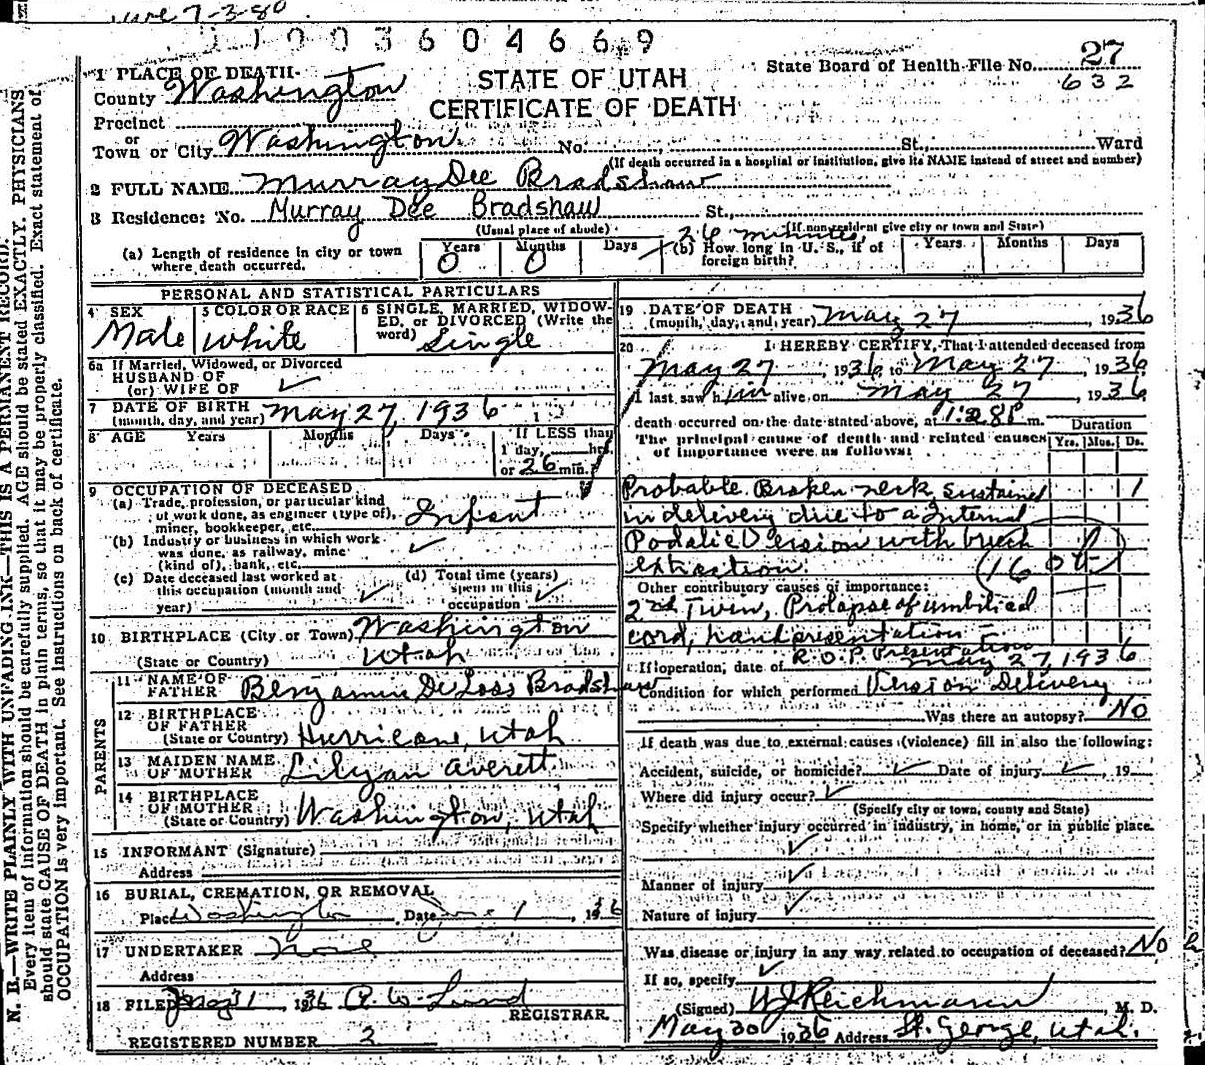 7-3-80
1 1 9 0 0 3 6 0 4 6 6 9
STATE OF UTAH
CERTIFICATE OF DEATH
State Board of Health File No. 27
632
1 PLACE OF DEATH
County Washington
Precinct
or
Town or City Washington No. St., Ward
(If death occurred in a hospital or institution, give its NAME instead of street and number)
2 FULL NAME Murray Dee Bradshaw
3 Residence: No. Murray Dee Bradshaw St.,
(Usual place of abode) (If nonresident give city or town and State)
(a) Length of residence in city or town where death occurred. Years 0 Months 0 Days 26 minutes
(b) How long in U. S., if of foreign birth? Years Months Days
PERSONAL AND STATISTICAL PARTICULARS
4 SEX Male
5 COLOR OR RACE White
6 SINGLE, MARRIED, WIDOWED, or DIVORCED (Write the word) Single
6a If Married, Widowed, or Divorced
HUSBAND OF
(or) WIFE OF
7 DATE OF BIRTH
(month, day, and year) May 27, 1936
8 AGE Years Months Days If LESS than
1 day, hrs.
or 26 min.
9 OCCUPATION OF DECEASED
(a) Trade, profession, or particular kind
of work done, as engineer (type of),
miner, bookkeeper, etc. Infant
(b) Industry or business in which work
was done, as railway, mine
(kind of), bank, etc.
(c) Date deceased last worked at
this occupation (month and
year)
(d) Total time (years)
spent in this
occupation
10 BIRTHPLACE (City or Town) Washington
(State or Country) Utah
PARENTS
11 NAME OF
FATHER Benjamin De Loss Bradshaw
12 BIRTHPLACE
OF FATHER
(State or Country) Hurricane, Utah
13 MAIDEN NAME
OF MOTHER Lilyan Averett
14 BIRTHPLACE
OF MOTHER
(State or Country) Washington, Utah
15 INFORMANT (Signature)
Address
16 BURIAL, CREMATION, OR REMOVAL
Place Washington Date June 1, 1936
17 UNDERTAKER None
Address
18 FILED May 31, 1936 A. W. Lund
REGISTRAR.
REGISTERED NUMBER 2
19 DATE OF DEATH
(month, day, and year) May 27, 1936
20 I HEREBY CERTIFY, That I attended deceased from
May 27, 1936 to May 27, 1936
I last saw him alive on May 27, 1936
death occurred on the date stated above, at 1:28 P m.
The principal cause of death and related causes
of importance were as follows:
Duration
Yrs. Mos. Ds.
Probable Broken neck sustained 1
in delivery due to a Internal
Podalic Version with breech
extraction.
Other contributory causes of importance:
2nd Twin, Prolapse of umbilical
cord, hand presentation -
R.O.P. Presentation
If operation, date of May 27, 1936
Condition for which performed Version Delivery
Was there an autopsy? No
If death was due to external causes (violence) fill in also the following:
Accident, suicide, or homicide? Date of injury , 19
Where did injury occur?
(Specify city or town, county and State)
Specify whether injury occurred in industry, in home, or in public place.
Manner of injury
Nature of injury
Was disease or injury in any way related to occupation of deceased? No
If so, specify
(Signed) W J Reichmann M. D.
May 30 1936 Address St. George, Utah.
N. B.—WRITE PLAINLY WITH UNFADING INK—THIS IS A PERMANENT RECORD.
Every item of information should be carefully supplied. AGE should be stated EXACTLY. PHYSICIANS
should state CAUSE OF DEATH in plain terms, so that it may be properly classified. Exact statement of
OCCUPATION is very important. See instructions on back of certificate.